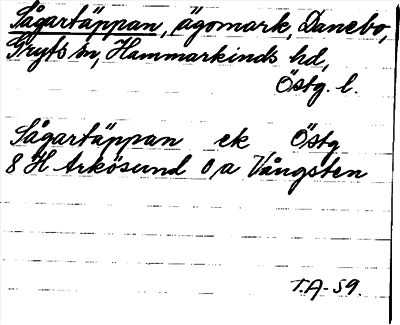 Sågartäppan, ägomark, Danebo,
Gryts sn, Hammarkinds hd,
Östg. l.
Sågartäppan ek Östg
8 H Arkösund 0/a Vångsten
T.A-59.